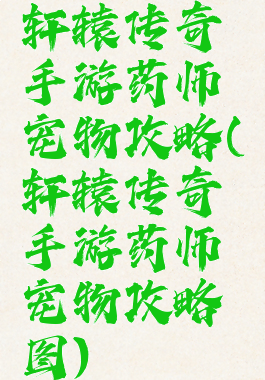 轩辕传奇
手游药师
宠物攻略(
轩辕传奇
手游药师
宠物攻略
图)